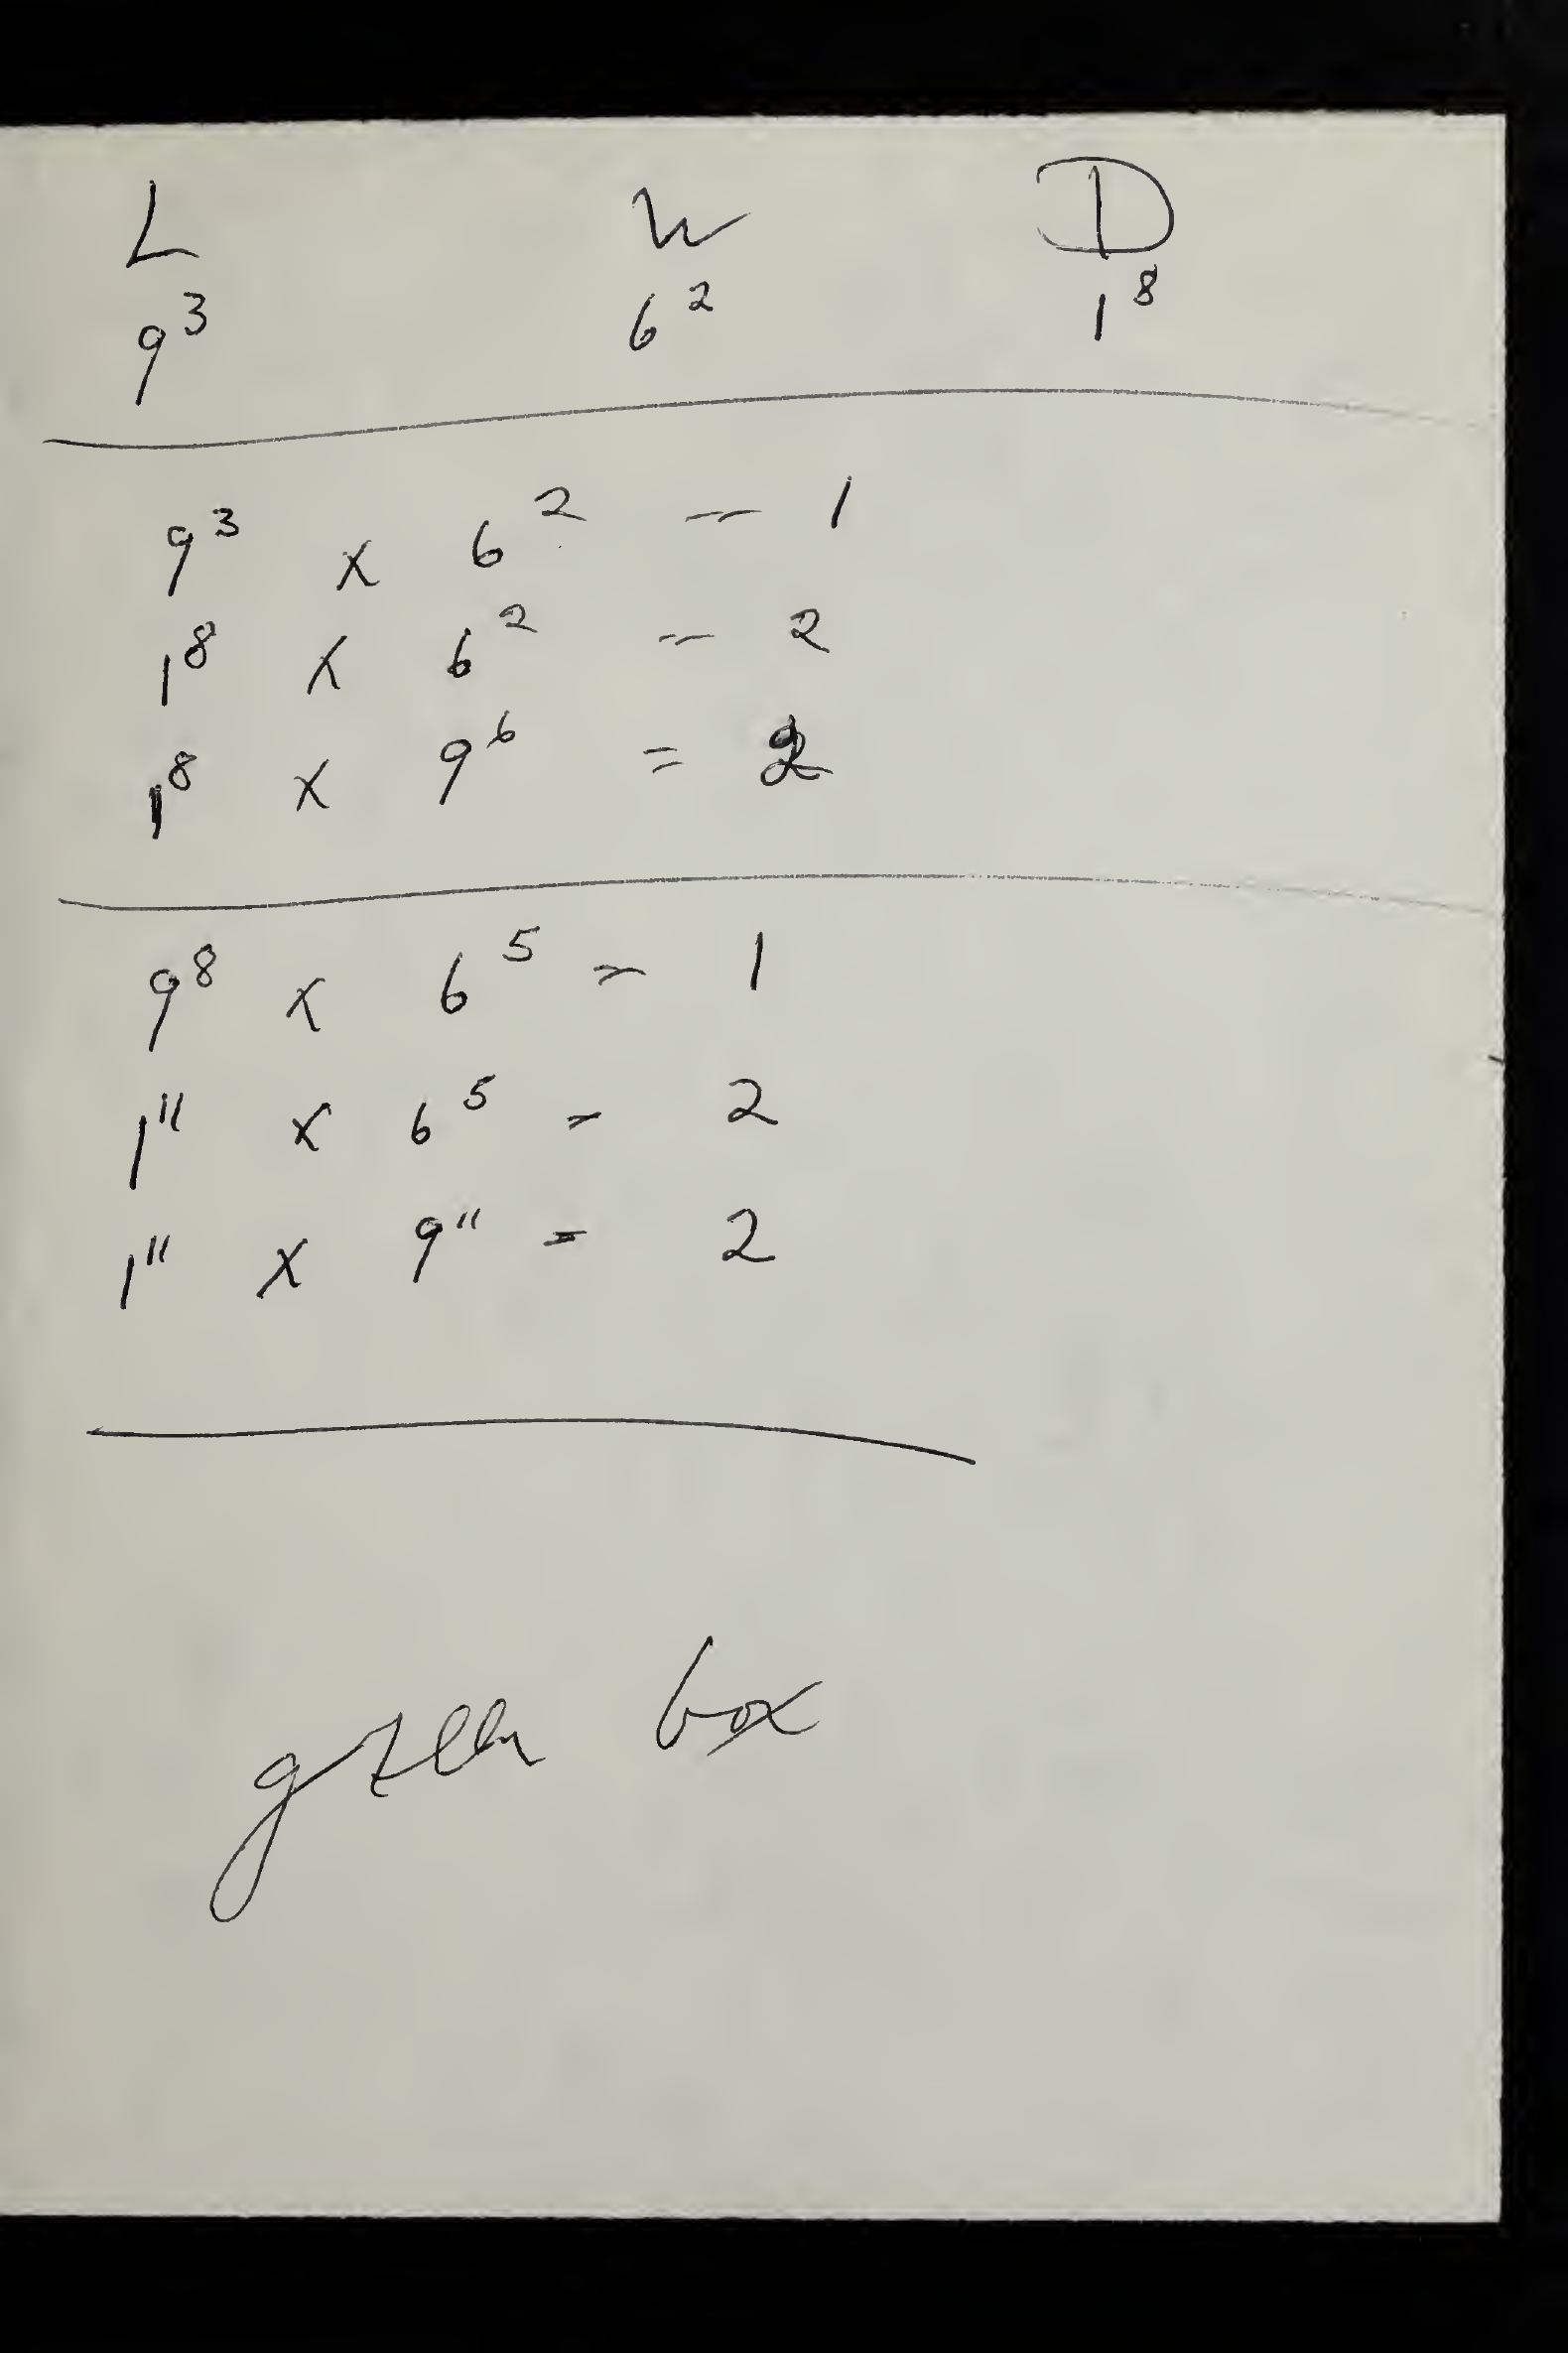 L W D
9³ 6² 1⁸
9³ x 6² = 1
1⁸ x 6² = 2
1⁸ x 9⁶ = 2
9⁸ x 6⁵ = 1
1¹¹ x 6⁵ = 2
1¹¹ x 9¹¹ = 2
green box